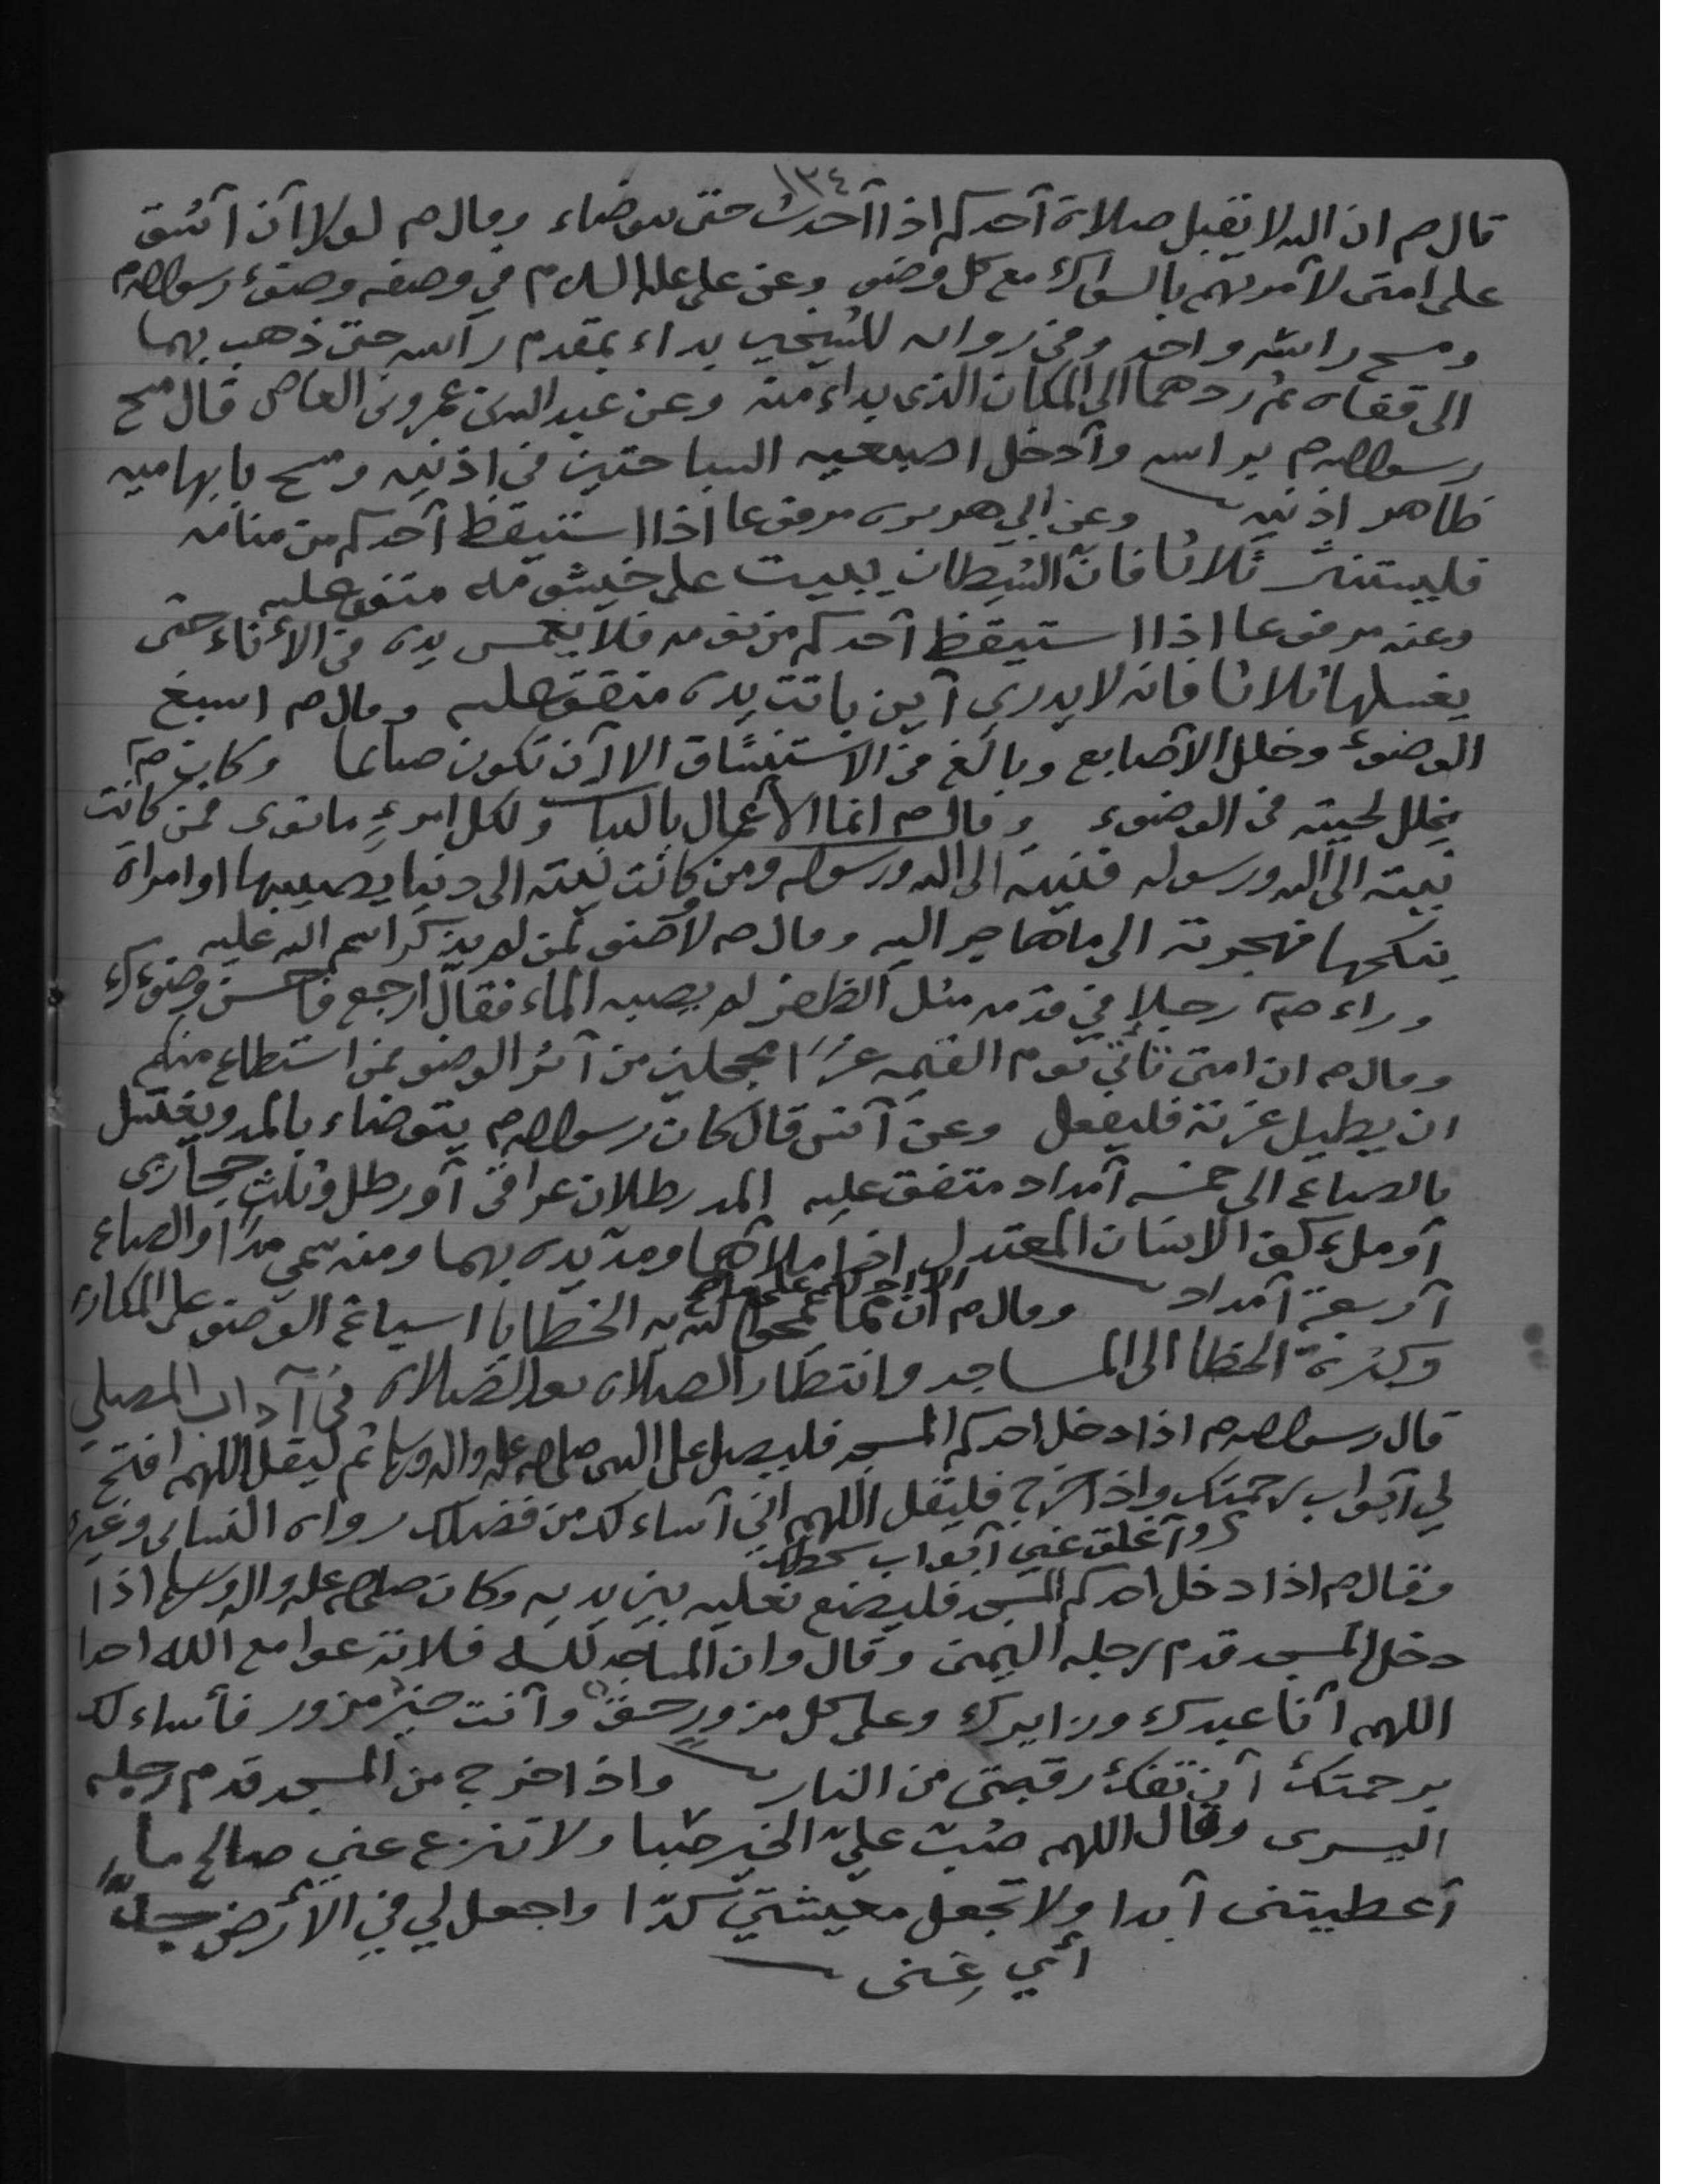 ١٣٤
قال صم ان الله لا يقبل صلاة أحدكم اذا أحدث حتى يتوضاء وقال صم لولا أن أشق
على امتي لأمرتهم بالسواك مع كل وضوء وعن علي عليه السلام في وصفه وضوء رسول الله صم
ومسح راسه واحد وفي رواية للشيخين بداء بمقدم رأسه حتى ذهب بهما
الى قفاه ثم ردهما الى المكان الذي بداء منه وعن عبد الله بن عمرو بن العاص قال مسح
رسول الله صم براسه وأدخل اصبعيه السباحتين في اذنيه ومسح بابهاميه
ظاهر اذنيه وعن أبي هريره مرفوعا اذا استيقظ أحدكم من منامه
فليستنثر ثلاثا فان الشيطان يبيت على خيشومه متفق عليه
وعنه مرفوعا اذا استيقظ أحدكم من نومه فلا يغمس يده في الأناء حتى
يغسلها ثلاثا فانه لا يدري أين باتت يده متفق عليه وقال صم اسبغ
الوضوء وخلل الأصابع وبالغ في الاستنشاق الا أن تكون صائما وكان صم
يخلل لحيته في الوضوء وقال صم انما الأعمال بالنيات ولكل امرءٍ ما نوى فمن كانت
نيته الى الله ورسوله فنيته الى الله ورسوله ومن كانت نيته الى دنيا يصيبها او امراة
ينكحها فهجرته الى ما هاجر اليه وقال صم لا وضوء لمن لم يذكر اسم الله عليه
وراء صم رجلا في قدمه مثل الظفر لم يصبه الماء فقال ارجع فاحسن وضوءك
وقال صم ان امتي تأتي يوم القيمه غرا محجلين من أثر الوضوء فمن استطاع منكم
ان يطيل غرته فليفعل وعن أنس قال كان رسول الله صم يتوضاء بالمد ويغتسل
بالصاع الى خمسه أمداد متفق عليه المد رطلان عراقي أو رطل وثلث حجازى
أو ملء كف الانسان المعتدل اذا ملأهما ومد يده بهما ومنه سمي مدا والصاع
أربعة أمداد وقال صم الا ادلكم على ما يمحو الله به الخطايا اسباغ الوضوء على المكاره
وكثرة الخطا الى المساجد وانتظار الصلاه بعد الصلاه في آداب المصلي
قال رسول الله صم اذا دخل احدكم المسجد فليصل على النبي صلى الله عليه واله وسلم ثم ليقل اللهم افتح
لي أبواب رحمتك واذا خرج فليقل اللهم اني أساءلك من فضلك رواه النسائى وغيره
وأغلق عني أبواب سخطك
وقال صم اذا دخل احدكم المسجد فليضع نعليه بين يديه وكان صلى الله عليه واله وسلم اذا
دخل المسجد قدم رجله اليمنى وقال وان المساجد لله فلا تدعوا مع الله احدا
اللهم أنا عبدك وزايرك وعلى كل مزورٍ حق وأنت خير مزور فأساءلك
برحمتك أن تفك رقبتي من النار واذا خرج من المسجد قدم رجله
اليسرى وقال اللهم صُبّ عليّ الخير صبا ولا تنزع عني صالح ما
أعطيتنى أبدا ولا تجعل معيشتي كدّا واجعل لي في الأرض جدا
أي غنى